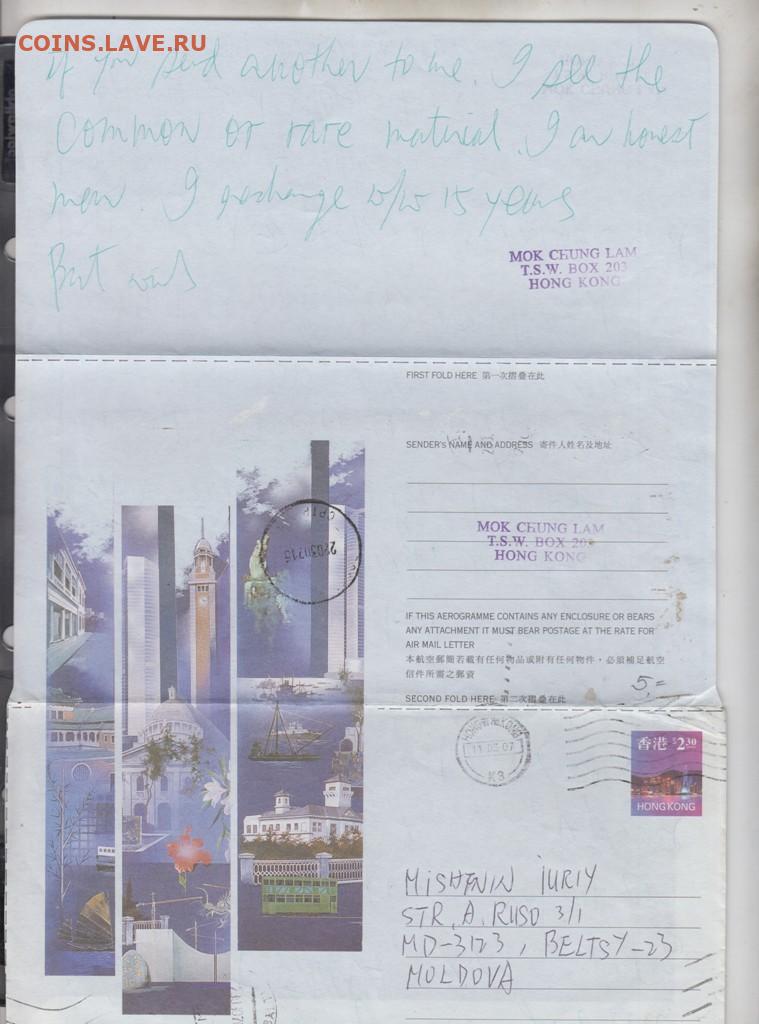 COINS.LAVE.RU
if you send another to me. I see the
common or rare material. I am honest
men. I exchange w/w 15 years
MOK CHUNG LAM
T.S.W. BOX 203
HONG KONG
FIRST FOLD HERE 第一次摺疊在此
SENDER'S NAME AND ADDRESS 寄件人姓名及地址
MOK CHUNG LAM
T.S.W. BOX 203
HONG KONG
IF THIS AEROGRAMME CONTAINS ANY ENCLOSURE OR BEARS
ANY ATTACHMENT IT MUST BEAR POSTAGE AT THE RATE FOR
AIR MAIL LETTER
本航空郵簡若載有任何物品或附有任何物件，必須補足航空
信件所需之郵資
5,=
SECOND FOLD HERE 第二次摺疊在此
HONG KONG
11 03 07
K3
香港 $2.30
HONG KONG
MISHENIN IURIY
STR. A. RUSO 3/1
MD-3123, BELTSY-23
MOLDOVA